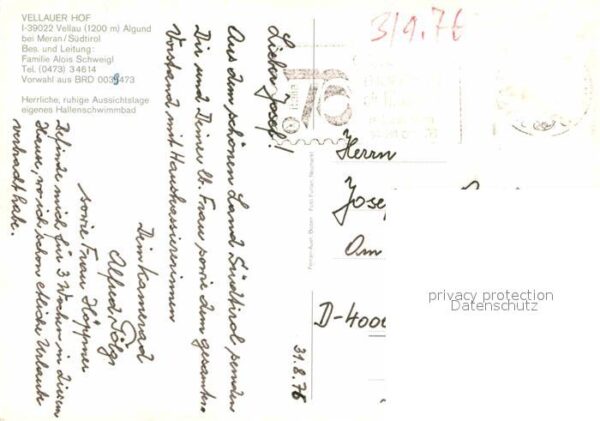 VELLAUER HOF
I-39022 Vellau (1200 m) Algund
bei Meran/Südtirol
Bes. und Leitung:
Familie Alois Schweigl
Tel. (0473) 34614
Vorwahl aus BRD 0039473
Herrliche, ruhige Aussichtslage
eigenes Hallenschwimmbad
3/9.76
31.8.76
Lieber Josef!
Aus dem schönen Land Südtirol senden
Dir und Deiner lb. Frau sowie dem gesamten
Vorstand mit Hauskassiererinnen
Dein Kamerad
Alfred
sowie Frau Höppner
Befinde mich für 3 Wochen in diesem
Hause, wo ich schon etliche Urlaube
verbracht habe.
italia
76
Herrn
Jose
Am
D-4000
privacy protection
Datenschutz